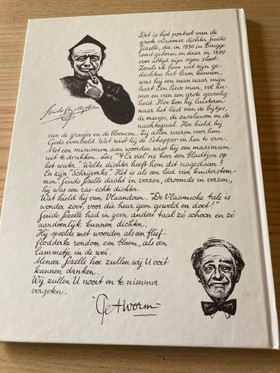 Dit is het portret van de
grote vlaamse dichter Guido
Gezelle, die in 1830 in Brugge
werd geboren en daar in 1899
voor altijd zijn ogen sloot.
Zoals ik hem uit zijn ge-
dichten heb leren kennen,
was hij een man naar mijn
hart. Een lieve man, vol hu-
mor en van een grote gevoelig-
heid. Hoe kon hij luisteren
naar het lied van de bijtjes,
de meesjes, de zwaluwen en de
nachtegaal. Hoe hield hij
van de grasjes en de bloemen. Zij allen waren voor hem
Gods evenbeeld. Wat roept hij de Schepper in hen te eren.
Met een minimum aan woorden wist hij een maximum
uit te drukken. Lees "'k Viel ne keer een bladtjen op
het water". Welke dichter heeft hem dit nagedaan?
En zijn "Schrijverke". Het is als een lied van kinderstem-
men. Guido Gezelle dacht in verzen, droomde in verzen,
hij was een ras-echte dichter.
Wat hield hij van Vlaanderen. "De Vlaamsche tale is
wonder zoet, voor die haar geen geweld en doet!"
Guido Gezelle had in geen andere taal zó schoon en zó
aandoenlijk kunnen dichten.
Hij speelde met woorden als een flief-
flodderke rondom een bloem, als een
lammetje in de wei.
Meneer Gezelle hoe zullen wij U ooit
kunnen danken.
Wij zullen U nooit en te nimmer
vergeten.
Guido Gezelle